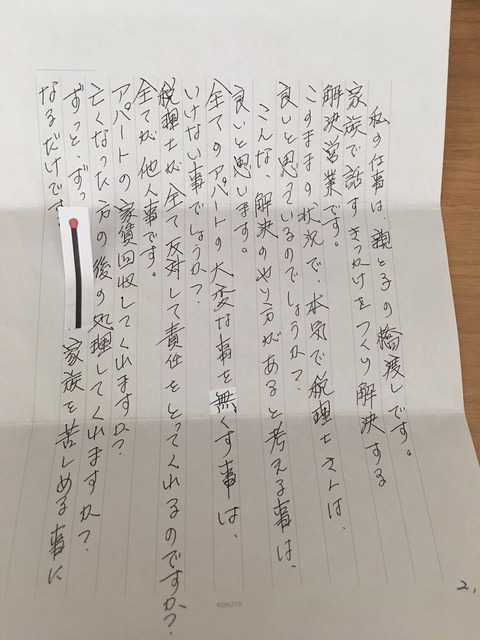 私の仕事は、親と子の橋渡しです。
家族で話すきっかけをつくり解決する
解決営業です。
このままの状況で、本気で税理士さんは、
良いと思えているのでしょうか?
こんな、解決のやり方があると考える事は、
良いと思います。
全てのアパートの大変な事を無くす事は、
いけない事でしょうか?
税理士が全て反対して責任をとってくれるのですか?
全てが他人事です。
アパートの家賃回収してくれますか?
亡くなった方の後の処理してくれますか?
ずっと、ずっ 家族を苦しめる事に
なるだけです
2.
KOKUYO